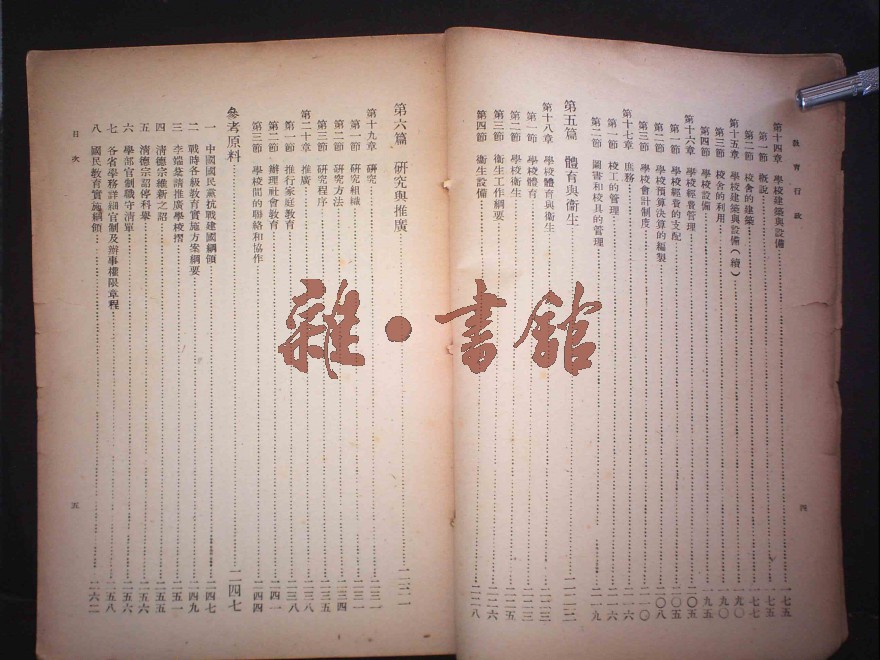 教育行政
第十四章 學校建築與設備……一七五
第一節 概說……一七五
第二節 校舍的建築……一七七
第十五章 學校建築與設備(續)……一九〇
第三節 校舍的利用……一九〇
第四節 學校設備……一九五
第十六章 學校經費管理……二〇五
第一節 學校經費的支配……二〇五
第二節 學校預算決算的編製……二〇八
第三節 學校會計制度……二一〇
第十七章 庶務……二一六
第一節 校工的管理……二一六
第二節 圖書和校具的管理……二一九
第五篇 體育與衞生……二二三
第十八章 學校體育與衞生……二二三
第一節 學校體育……二二三
第二節 學校衞生……二二五
第三節 衞生工作綱要……二二六
第四節 衞生設備……二二八
四
第六篇 研究與推廣……二三一
第十九章 研究……二三一
第一節 研究組織……二三一
第二節 研究方法……二三四
第三節 研究程序……二三五
第二十章 推廣……二三八
第一節 推行家庭教育……二三八
第二節 辦理社會教育……二四一
第三節 學校間的聯絡和協作……二四四
參考原料……二四七
一 中國國民黨抗戰建國綱領……二四七
二 戰時各級教育實施方案綱要……二四九
三 李端棻請推廣學校摺……二五一
四 清德宗維新之詔……二五五
五 清德宗詔停科舉……二五六
六 學部官制職守清單……二五六
七 各省學務詳細官制及辦事權限章程……二五八
八 國民教育實施綱領……二六二
目次
五
雜·書館